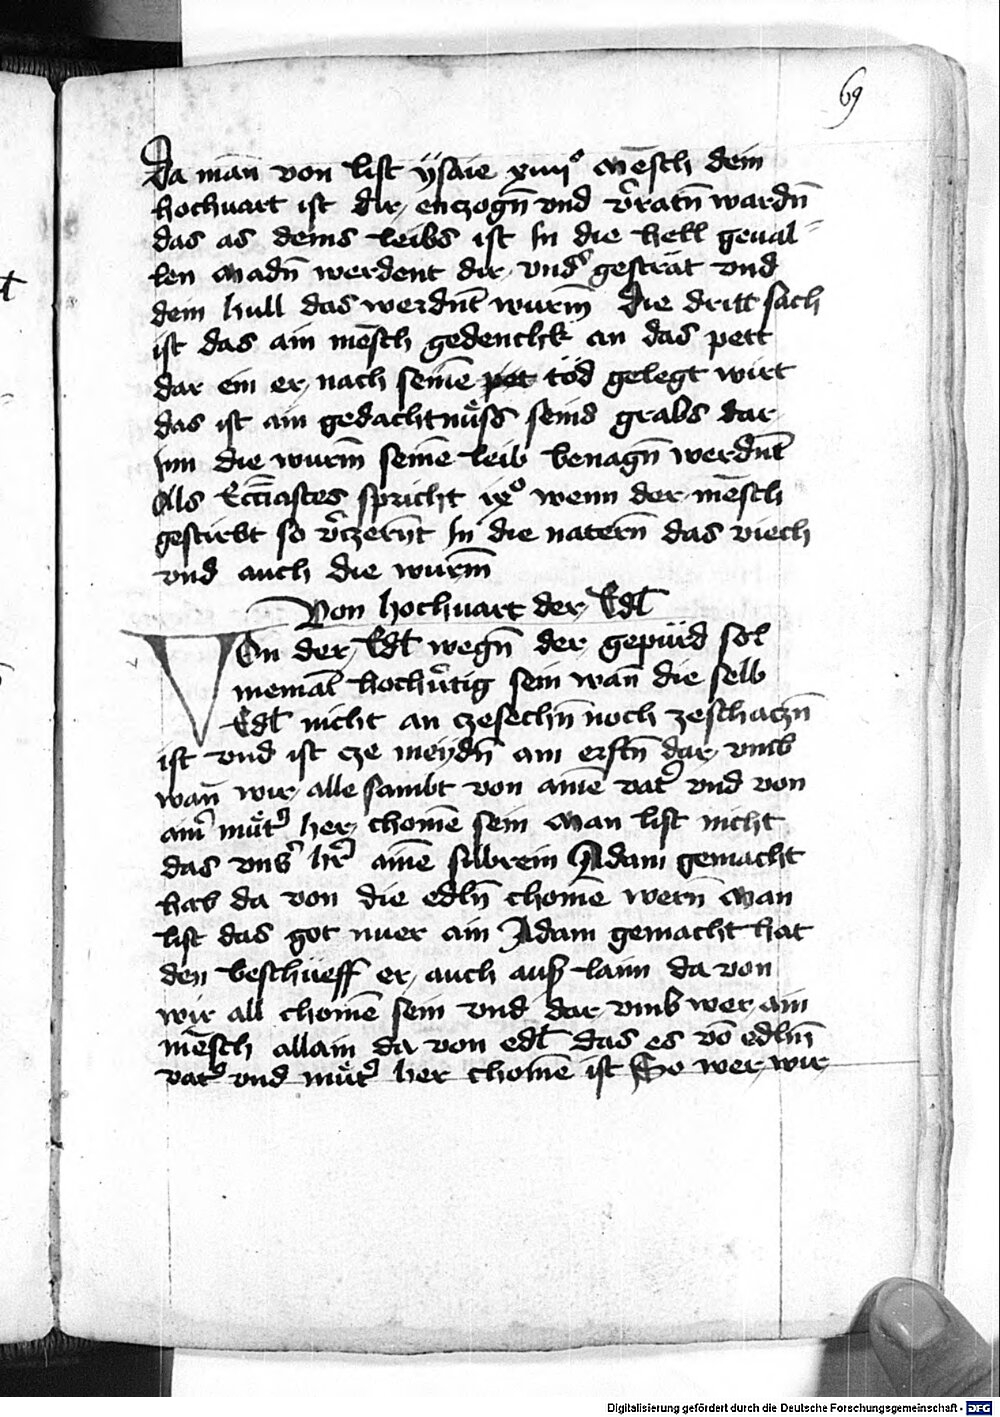 69
Da man̄ von list ÿsaie xiiijº Mēsch dein
hochuart ist dir enczogn̄ vnd v̾ratn̄ wardn̄
das as deins leibs ist In die hell geual⸗
len Madn̄ werdent dir vnds̾ gesträt vnd
dein hull das werdnt̄ wurm̄ Die dritt sach
ist das ain mēsch gedenchk an das pett
dar ein er nach seinē pet töd gelegt wirt
das ist ain gedachtnüss seins grabs dar
Inn die wurm̄ seinē leib benagn̄ werdnt̄
Als Eccīastes spricht ixº wenn der mēsch
gestirbt so v̾czernt̄ In die natern̄ das viech
vnd auch die wurm̄
Von hochuart der Edl̄
Von der Edl̄ wegn̄ der gepürd sol
niemāl hochu̾tig sein wān die selb
Edl̄ nicht an czesechn̄ noch zeschaczn̄
ist vnd ist cze meÿdn̄ am erstn̄ dar vmb
wan̄ wir alle sambt von ainē vat̾ vnd von
ain̾ müt̾ her chomē sein Man list nicht
das vns̾ hr̾ ainē silbrein Adam gemacht
hab da von die edln̄ chomē wern̄ Man
list das got nuer ain Adam gemacht hat
den beschüeff er auch auß laim da von
wir all chomē sein vnd dar vmb wer ain
mēsch allain da von edl̄ das es vō edlm̄
vat̾ vnd müt̾ her chomē ist So wer wir
Digitalisierung gefördert durch die Deutsche Forschungsgemeinschaft - DFG